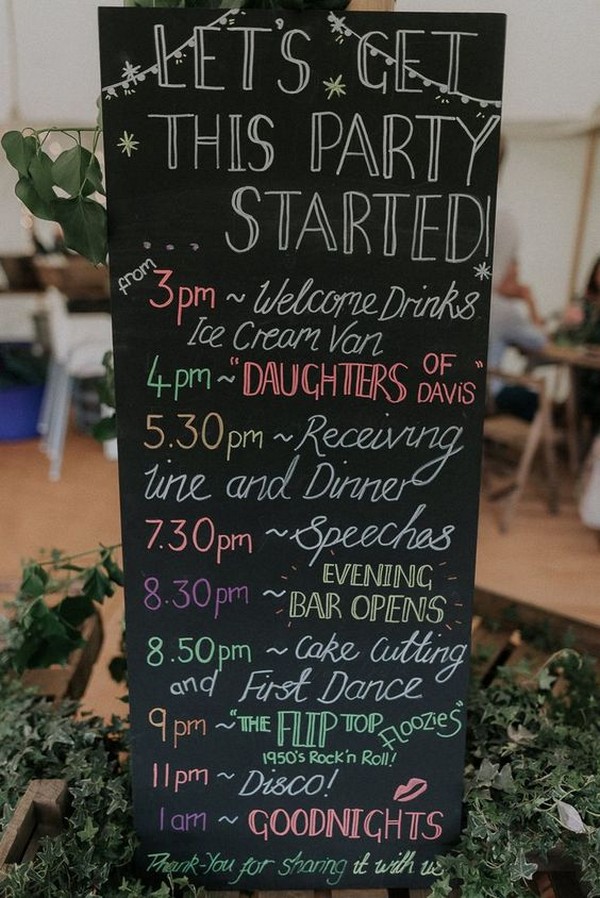 LET'S GET
THIS PARTY
.... STARTED!
from
3pm ~ Welcome Drinks
Ice Cream Van
4pm ~ "DAUGHTERS OF DAVIS"
5.30pm ~ Receiving
line and Dinner
7.30pm ~ Speeches
8.30pm ~ EVENING
BAR OPENS
8.50pm ~ Cake Cutting
and First Dance
9pm ~ "THE FLIP TOP Floozies"
1950's Rock'n Roll!
11pm ~ Disco!
1am ~ GOODNIGHTS
Thank-You for sharing it with us